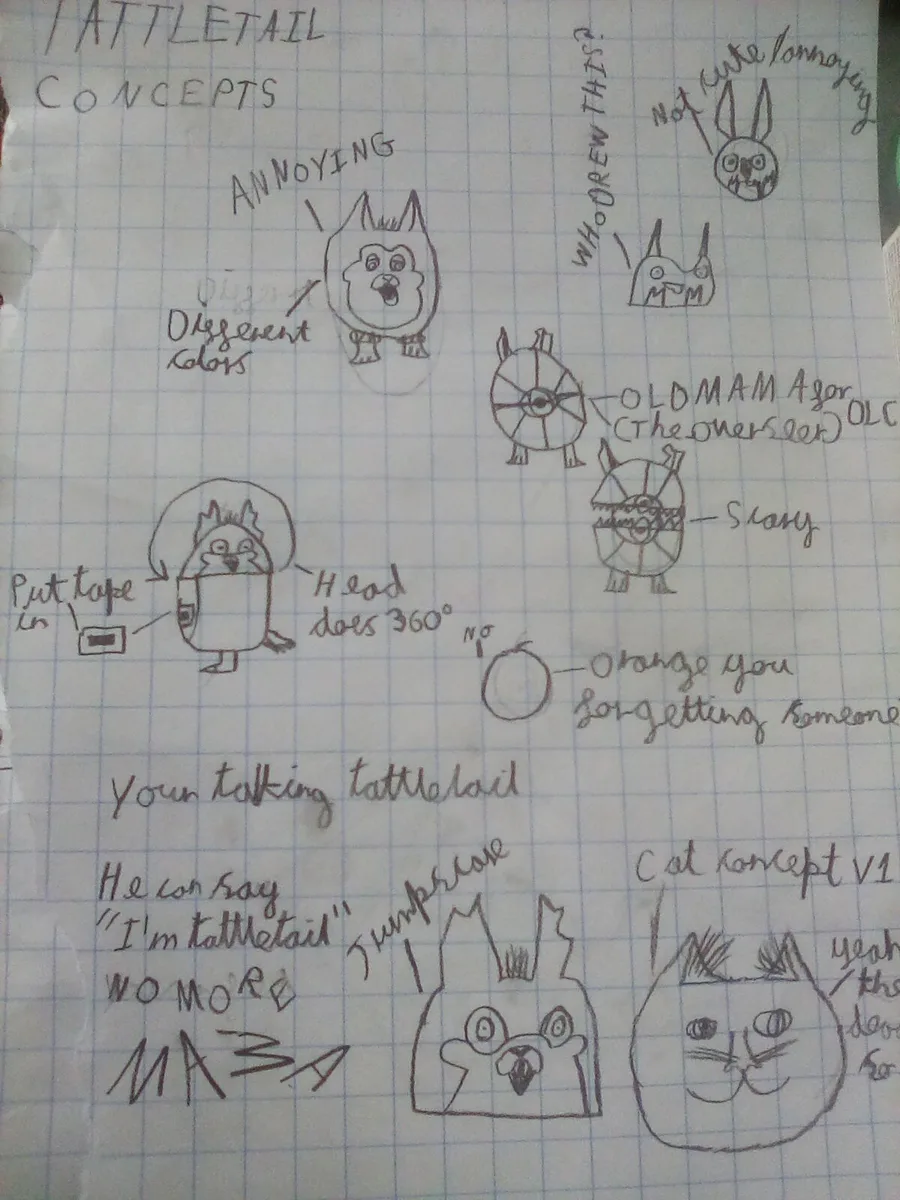 TATTLETAIL
CONCEPTS
ANNOYING
Different
colors
WHO DREW THIS?
Not cute/annoying
OLD MAMA for
(The overseer) OLC
Scary
Put tape
in
Head
does 360°
NO
Orange you
forgetting someone
Your talking tattletail
He can say
"I'm tattletail"
NO MORE
MAMA
Jumpscare
Cat concept V1
yeah